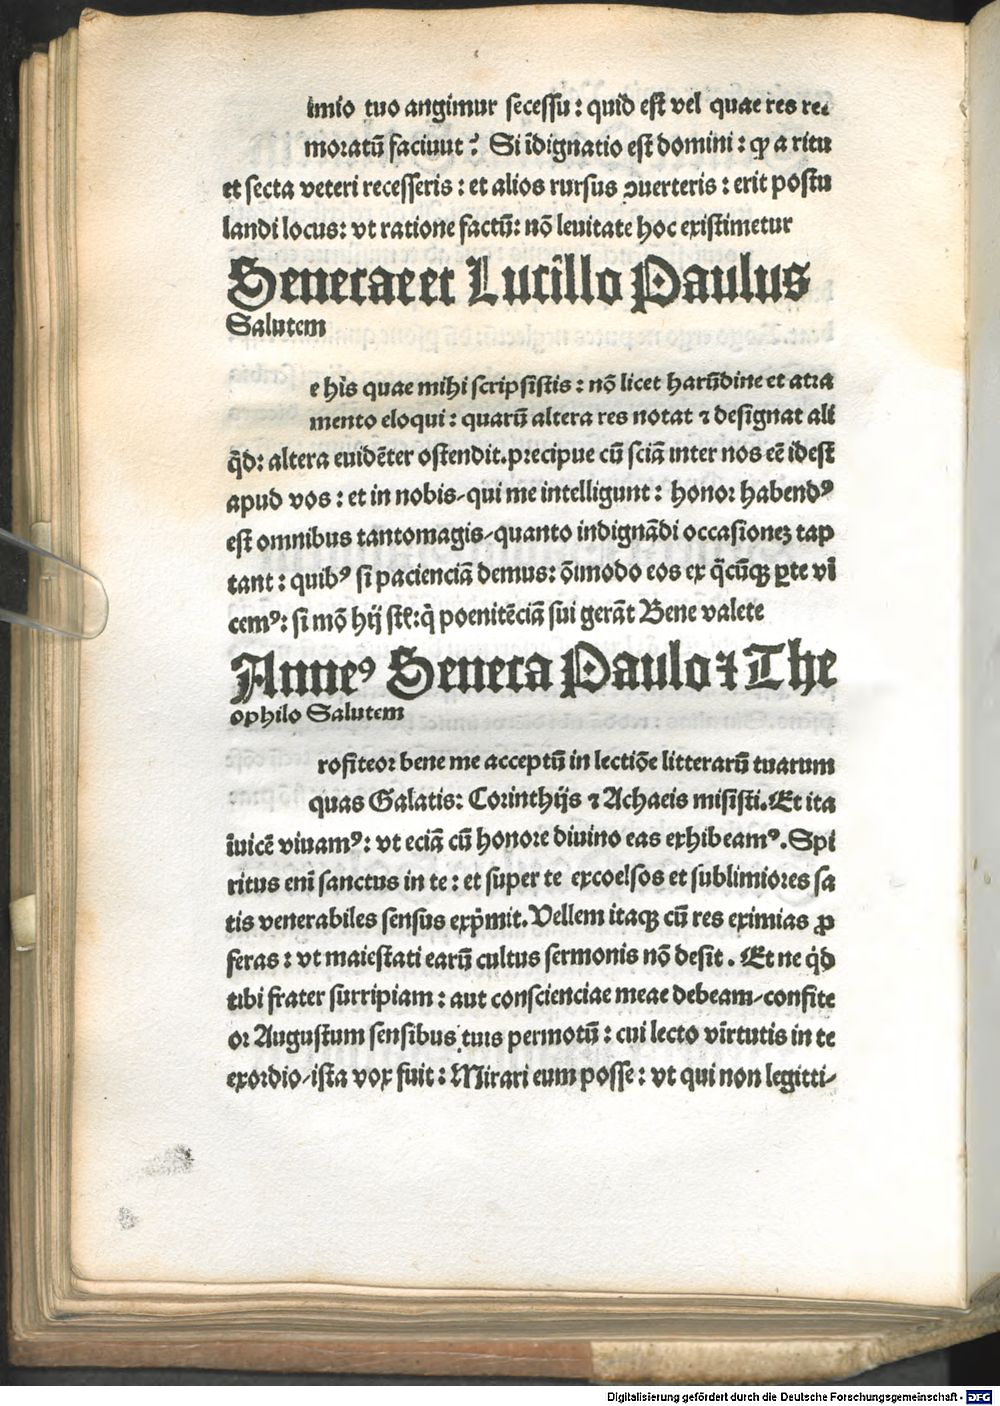 imio tuo angimur secessu: quid est vel quae res rei
moratū faciuut? Si īdignatio est domini: ꝙ a ritu
et secta veteri recesseris: et alios rursus ꝯuerteris: erit postu
landi locus: vt ratione factū: nō leuitate hoc existimetur
Senecae et Lucillo Paulus
Salutem
e hìs quae mihi scripsistis: nō licet harūdine et atra
mento eloqui: quarū altera res notat ⁊ designat ali
q̄d: altera euidēter ostendit. precipue cū sciā inter nos eē idest
apud vos: et in nobis/qui me intelligunt: honor habendꝰ
est omnibus tantomagis/quanto indignādi occasionez tap
tant: quibꝰ si pacienciā demus: ōimodo eos ex q̄cūqꝫ ꝑte vī
cemꝰ: si mō hij st̄: q̇ poenitēciā sui gerāt Bene valete
Anneꝰ Seneca Paulo ⁊ The
ophilo Salutem
rofiteor bene me acceptū in lectiōe litterarū tuarum
quas Galatis: Corinthijs ⁊ Achaeis misisti. Et ita
īuicē viuamꝰ: vt eciā cū honore diuino eas exhibeamꝰ. Spi
ritus enī sanctus in te: et super te excoelsos et sublimiores sa
tis venerabiles sensus exp̄mit. Vellem itaqꝫ cū res eximias ꝓ
feras: vt maiestati earū cultus sermonis nō desit. Et ne q̇d
tibi frater surripiam: aut conscienciae meae debeam/confite
or Augustum sensibus tuis permotū: cui lecto virtutis in te
exordio/ista vox fuit: Mirari eum posse: vt qui non legitti/
Digitalisierung gefördert durch die Deutsche Forschungsgemeinschaft - DFG